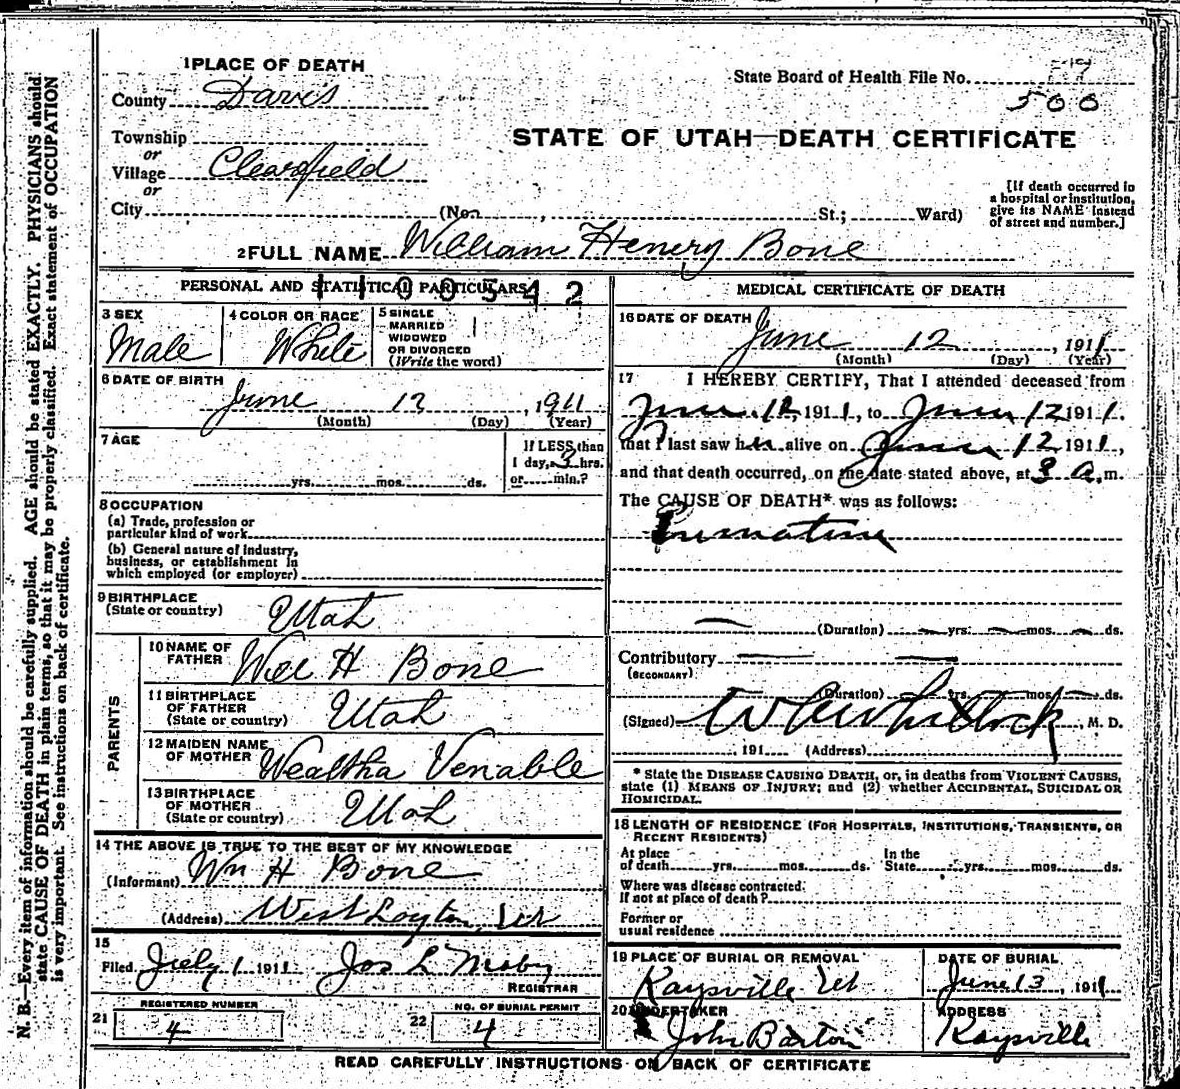 1 PLACE OF DEATH
County Davis
Township
or
Village Clearfield
or
City (No. , St.; Ward)
State Board of Health File No.
500
STATE OF UTAH—DEATH CERTIFICATE
[If death occurred in
a hospital or institution,
give its NAME instead
of street and number.]
2 FULL NAME William Henery Bone
PERSONAL AND STATISTICAL PARTICULARS
1100542
3 SEX
Male
4 COLOR OR RACE
White
5 SINGLE
MARRIED
WIDOWED
OR DIVORCED
(Write the word)
6 DATE OF BIRTH
June 12, 1911
(Month) (Day) (Year)
7 AGE
yrs. mos. ds.
If LESS than
1 day, 3 hrs.
or min.?
8 OCCUPATION
(a) Trade, profession or
particular kind of work
(b) General nature of industry,
business, or establishment in
which employed (or employer)
9 BIRTHPLACE
(State or country) Utah
PARENTS
10 NAME OF
FATHER Will H Bone
11 BIRTHPLACE
OF FATHER
(State or country) Utah
12 MAIDEN NAME
OF MOTHER Wealtha Venable
13 BIRTHPLACE
OF MOTHER
(State or country) Utah
14 THE ABOVE IS TRUE TO THE BEST OF MY KNOWLEDGE
(Informant) Wm H Bone
(Address) West Layton, Ut
15
Filed July 1 1911 Jos L
REGISTRAR
21 REGISTERED NUMBER
4
22 NO. OF BURIAL PERMIT
4
MEDICAL CERTIFICATE OF DEATH
16 DATE OF DEATH
June 12, 1911
(Month) (Day) (Year)
17 I HEREBY CERTIFY, That I attended deceased from
June 12, 1911, to June 12 1911.
that I last saw h alive on June 12 1911,
and that death occurred, on the date stated above, at 3 a.m.
The CAUSE OF DEATH* was as follows:
Premature
(Duration) yrs. mos. ds.
Contributory
(SECONDARY)
(Duration) yrs. mos. ds.
(Signed) Whitlock, M. D.
191 (Address)
* State the DISEASE CAUSING DEATH, or, in deaths from VIOLENT CAUSES,
state (1) MEANS OF INJURY; and (2) whether ACCIDENTAL, SUICIDAL OR
HOMICIDAL.
18 LENGTH OF RESIDENCE (FOR HOSPITALS, INSTITUTIONS, TRANSIENTS, OR
RECENT RESIDENTS)
At place
of death yrs. mos. ds.
In the
State yrs. mos. ds.
Where was disease contracted,
If not at place of death?
Former or
usual residence
19 PLACE OF BURIAL OR REMOVAL
Kaysville Ut
DATE OF BURIAL
June 13, 1911
20 UNDERTAKER
John Barton
ADDRESS
Kaysville
READ CAREFULLY INSTRUCTIONS ON BACK OF CERTIFICATE
N. B.—Every item of information should be carefully supplied. AGE should be stated EXACTLY. PHYSICIANS should
state CAUSE OF DEATH in plain terms, so that it may be properly classified. Exact statement of OCCUPATION
is very important. See instructions on back of certificate.